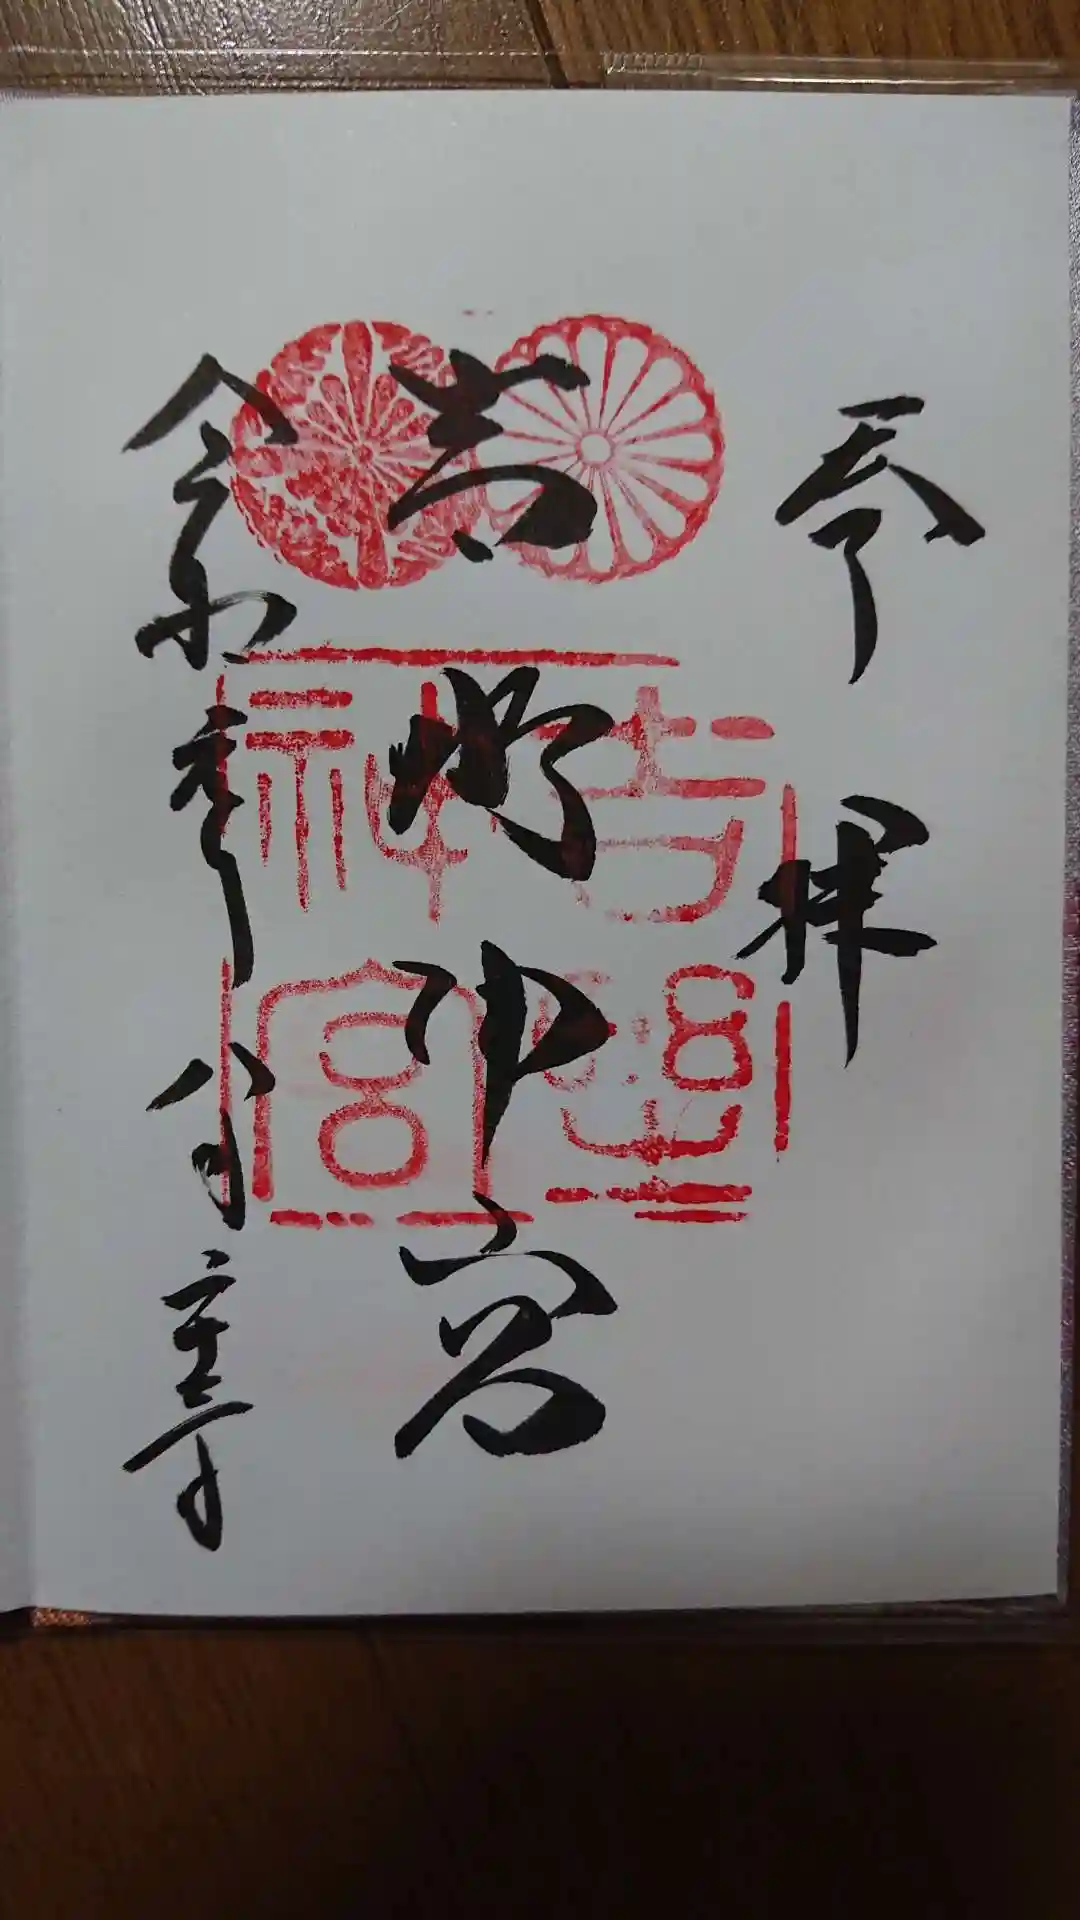 奉拝
吉野神宮
令和 年八月 日
吉野神宮